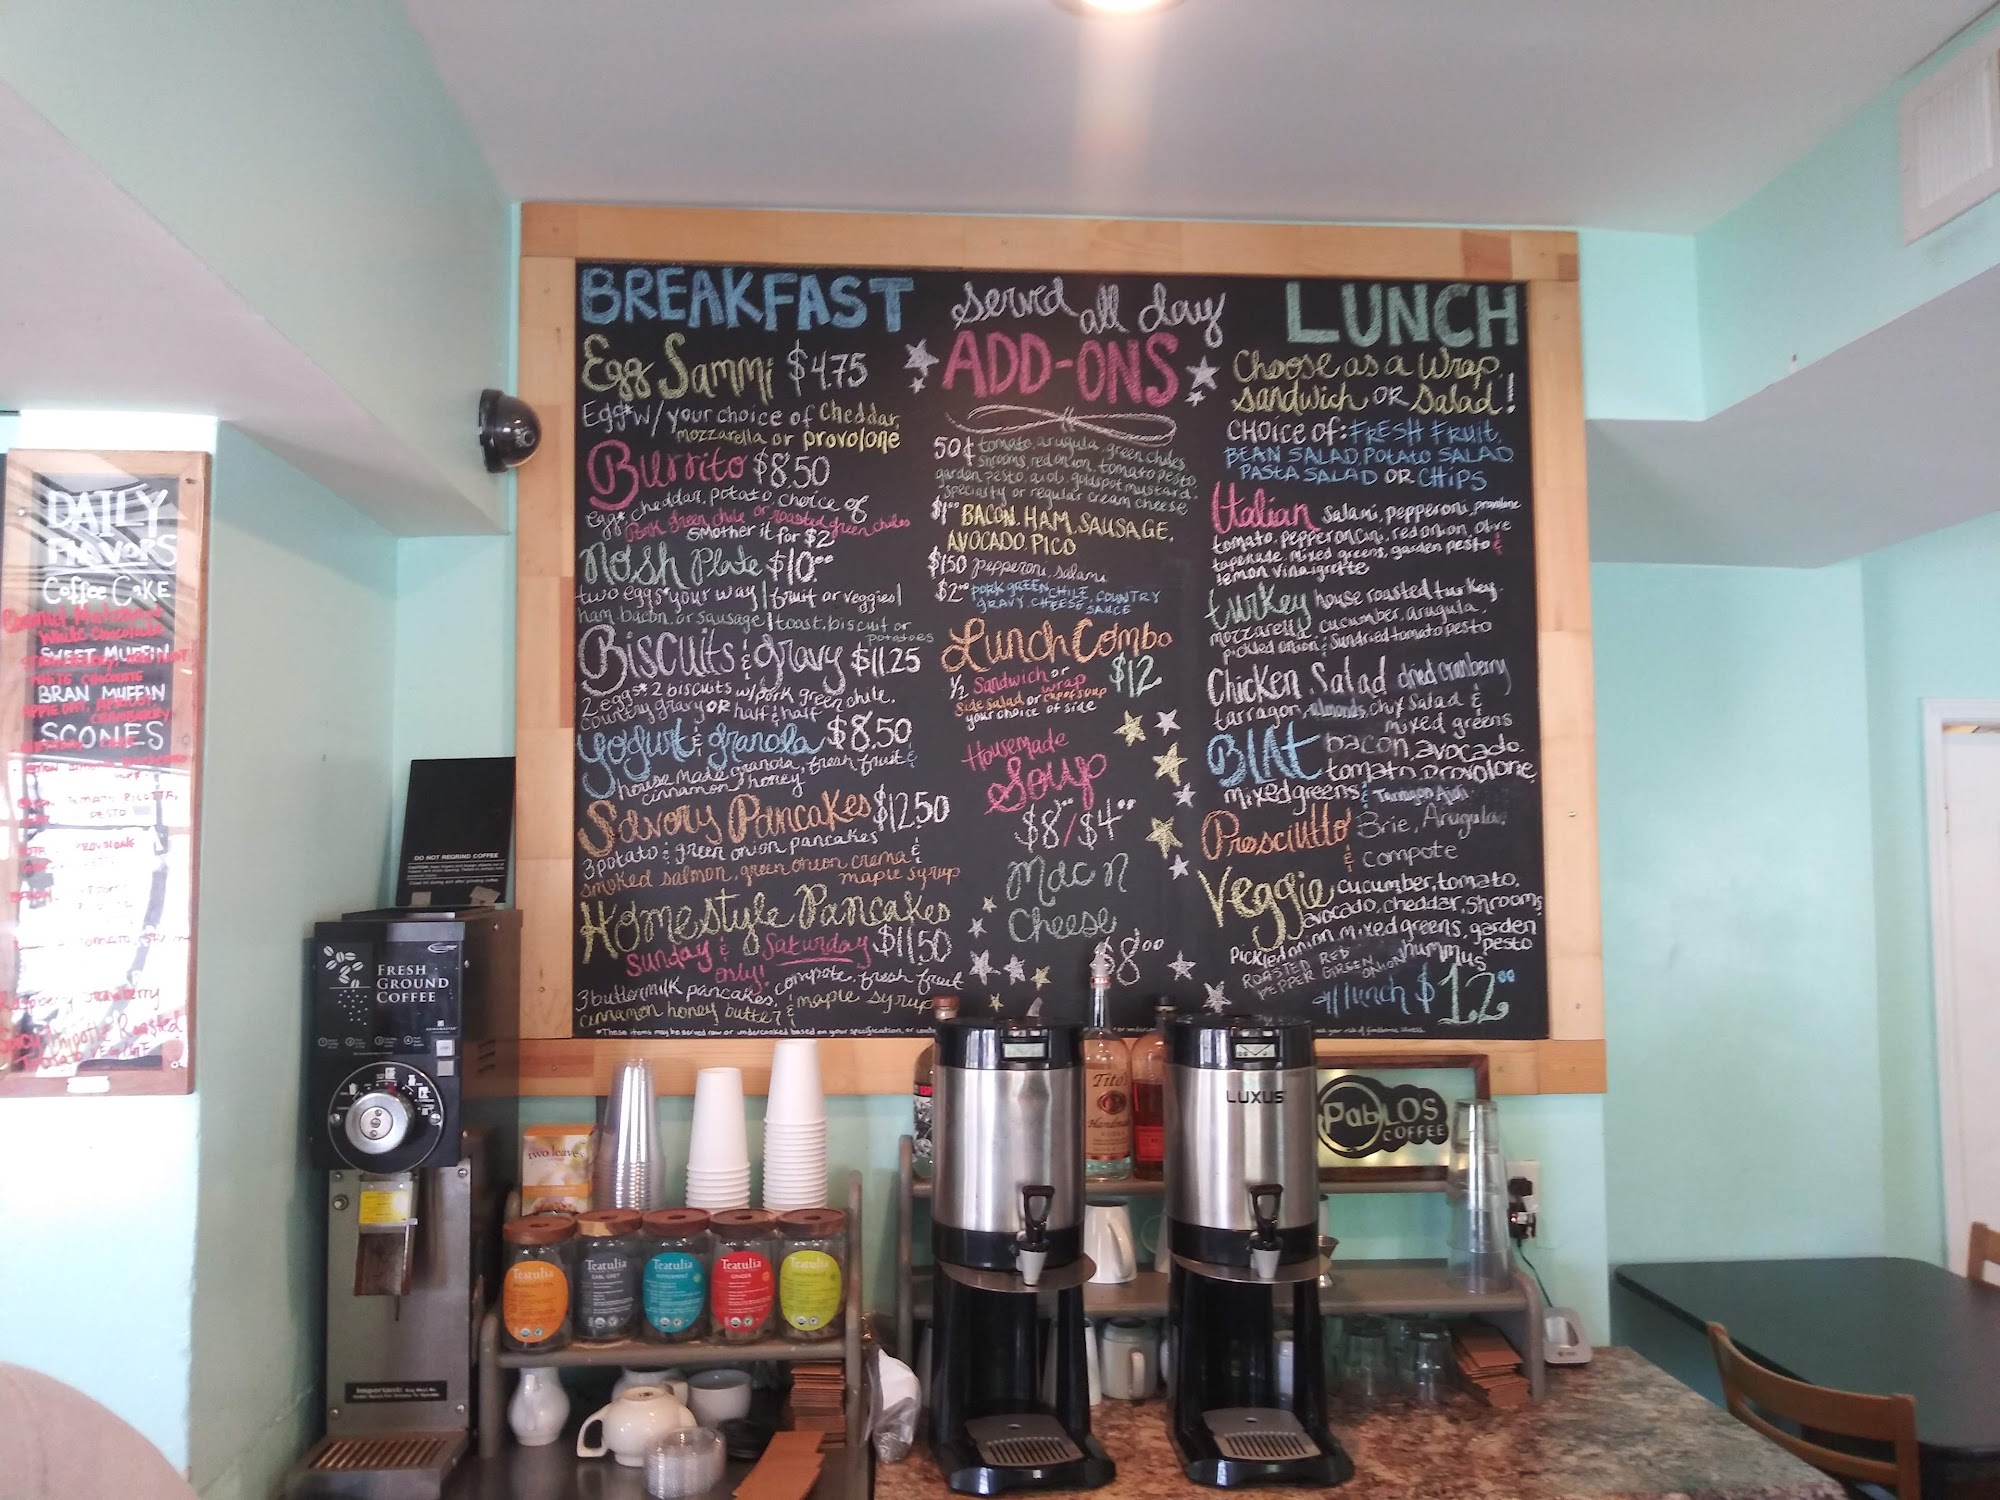 BREAKFAST
Egg Sammi $4.75
Egg* w/ your choice of Cheddar,
mozzarella or provolone
Burrito $8.50
egg* cheddar, potato, choice of
Pork green chile or roasted green chiles
smother it for $2
Nosh Plate $10.00
two eggs* your way | fruit or veggies |
ham, bacon, or sausage | toast, biscuit or
potatoes
Biscuits & gravy $11.25
2 eggs* 2 biscuits w/ pork green chile,
country gravy OR half & half
Yogurt & granola $8.50
house made granola, fresh fruit &
cinnamon honey
Savory Pancakes $12.50
3 potato & green onion pancakes
smoked salmon, green onion crema &
maple syrup
Homestyle Pancakes
Sunday & Saturday $11.50
only!
3 buttermilk pancakes, compote, fresh fruit
cinnamon honey butter & maple syrup
*These items may be served raw or undercooked based on your specification, or
your risk of foodborne illness.
Served all day
ADD-ONS
50¢ tomato, arugula, green chiles
shrooms, red onion, tomato pesto,
garden pesto, aioli, goldspot mustard,
specialty or regular cream cheese
$1.00 BACON, HAM, SAUSAGE,
AVOCADO, PICO
$1.50 pepperoni, salami
$2.00 PORK GREEN CHILE, COUNTRY
GRAVY, CHEESE SAUCE
Lunch Combo
$12
½ Sandwich or
wrap
Side Salad or cup of soup
your choice of side
Housemade
Soup
$8.00/$4.00
Mac N
Cheese
$8.00
LUNCH
Choose as a Wrap,
Sandwich OR Salad!
CHOICE OF: FRESH FRUIT,
BEAN SALAD, POTATO SALAD
PASTA SALAD OR CHIPS
Italian salami, pepperoni, provolone
tomato, pepperoncini, red onion, olive
tapenade, mixed greens, garden pesto &
lemon vinaigrette
turkey house roasted turkey,
mozzarella, cucumber, arugula,
pickled onion & sundried tomato pesto
Chicken Salad dried cranberry
tarragon, almonds, chx salad &
mixed greens
BLAt bacon, avocado,
tomato, provolone,
mixed greens & Tarragon Aioli
Prosciutto Brie, Arugula,
& compote
Veggie cucumber, tomato,
avocado, cheddar, shrooms,
pickled onion, mixed greens, garden
pesto
hummus
ROASTED RED
PEPPER GREEN ONION
All lunch $12.00
DAILY
FLAVORS
Coffee Cake
White Chocolate
SWEET MUFFIN
WHITE CHOCOLATE
BRAN MUFFIN
APPLE OAT, APRICOT
CRANBERRY
SCONES
TOMATO RICOTTA,
PESTO
PROVOLONE
Raspberry Strawberry
Spicy Chipotle Roasted
Tomato VEGGIE
DO NOT REGRIND COFFEE
FRESH
GROUND
COFFEE
Important:
two leaves
Teatulia
Teatulia
EARL GREY
Teatulia
PEPPERMINT
Teatulia
GINGER
Teatulia
Tito's
Handmade
LUXUS
PabLOS
COFFEE